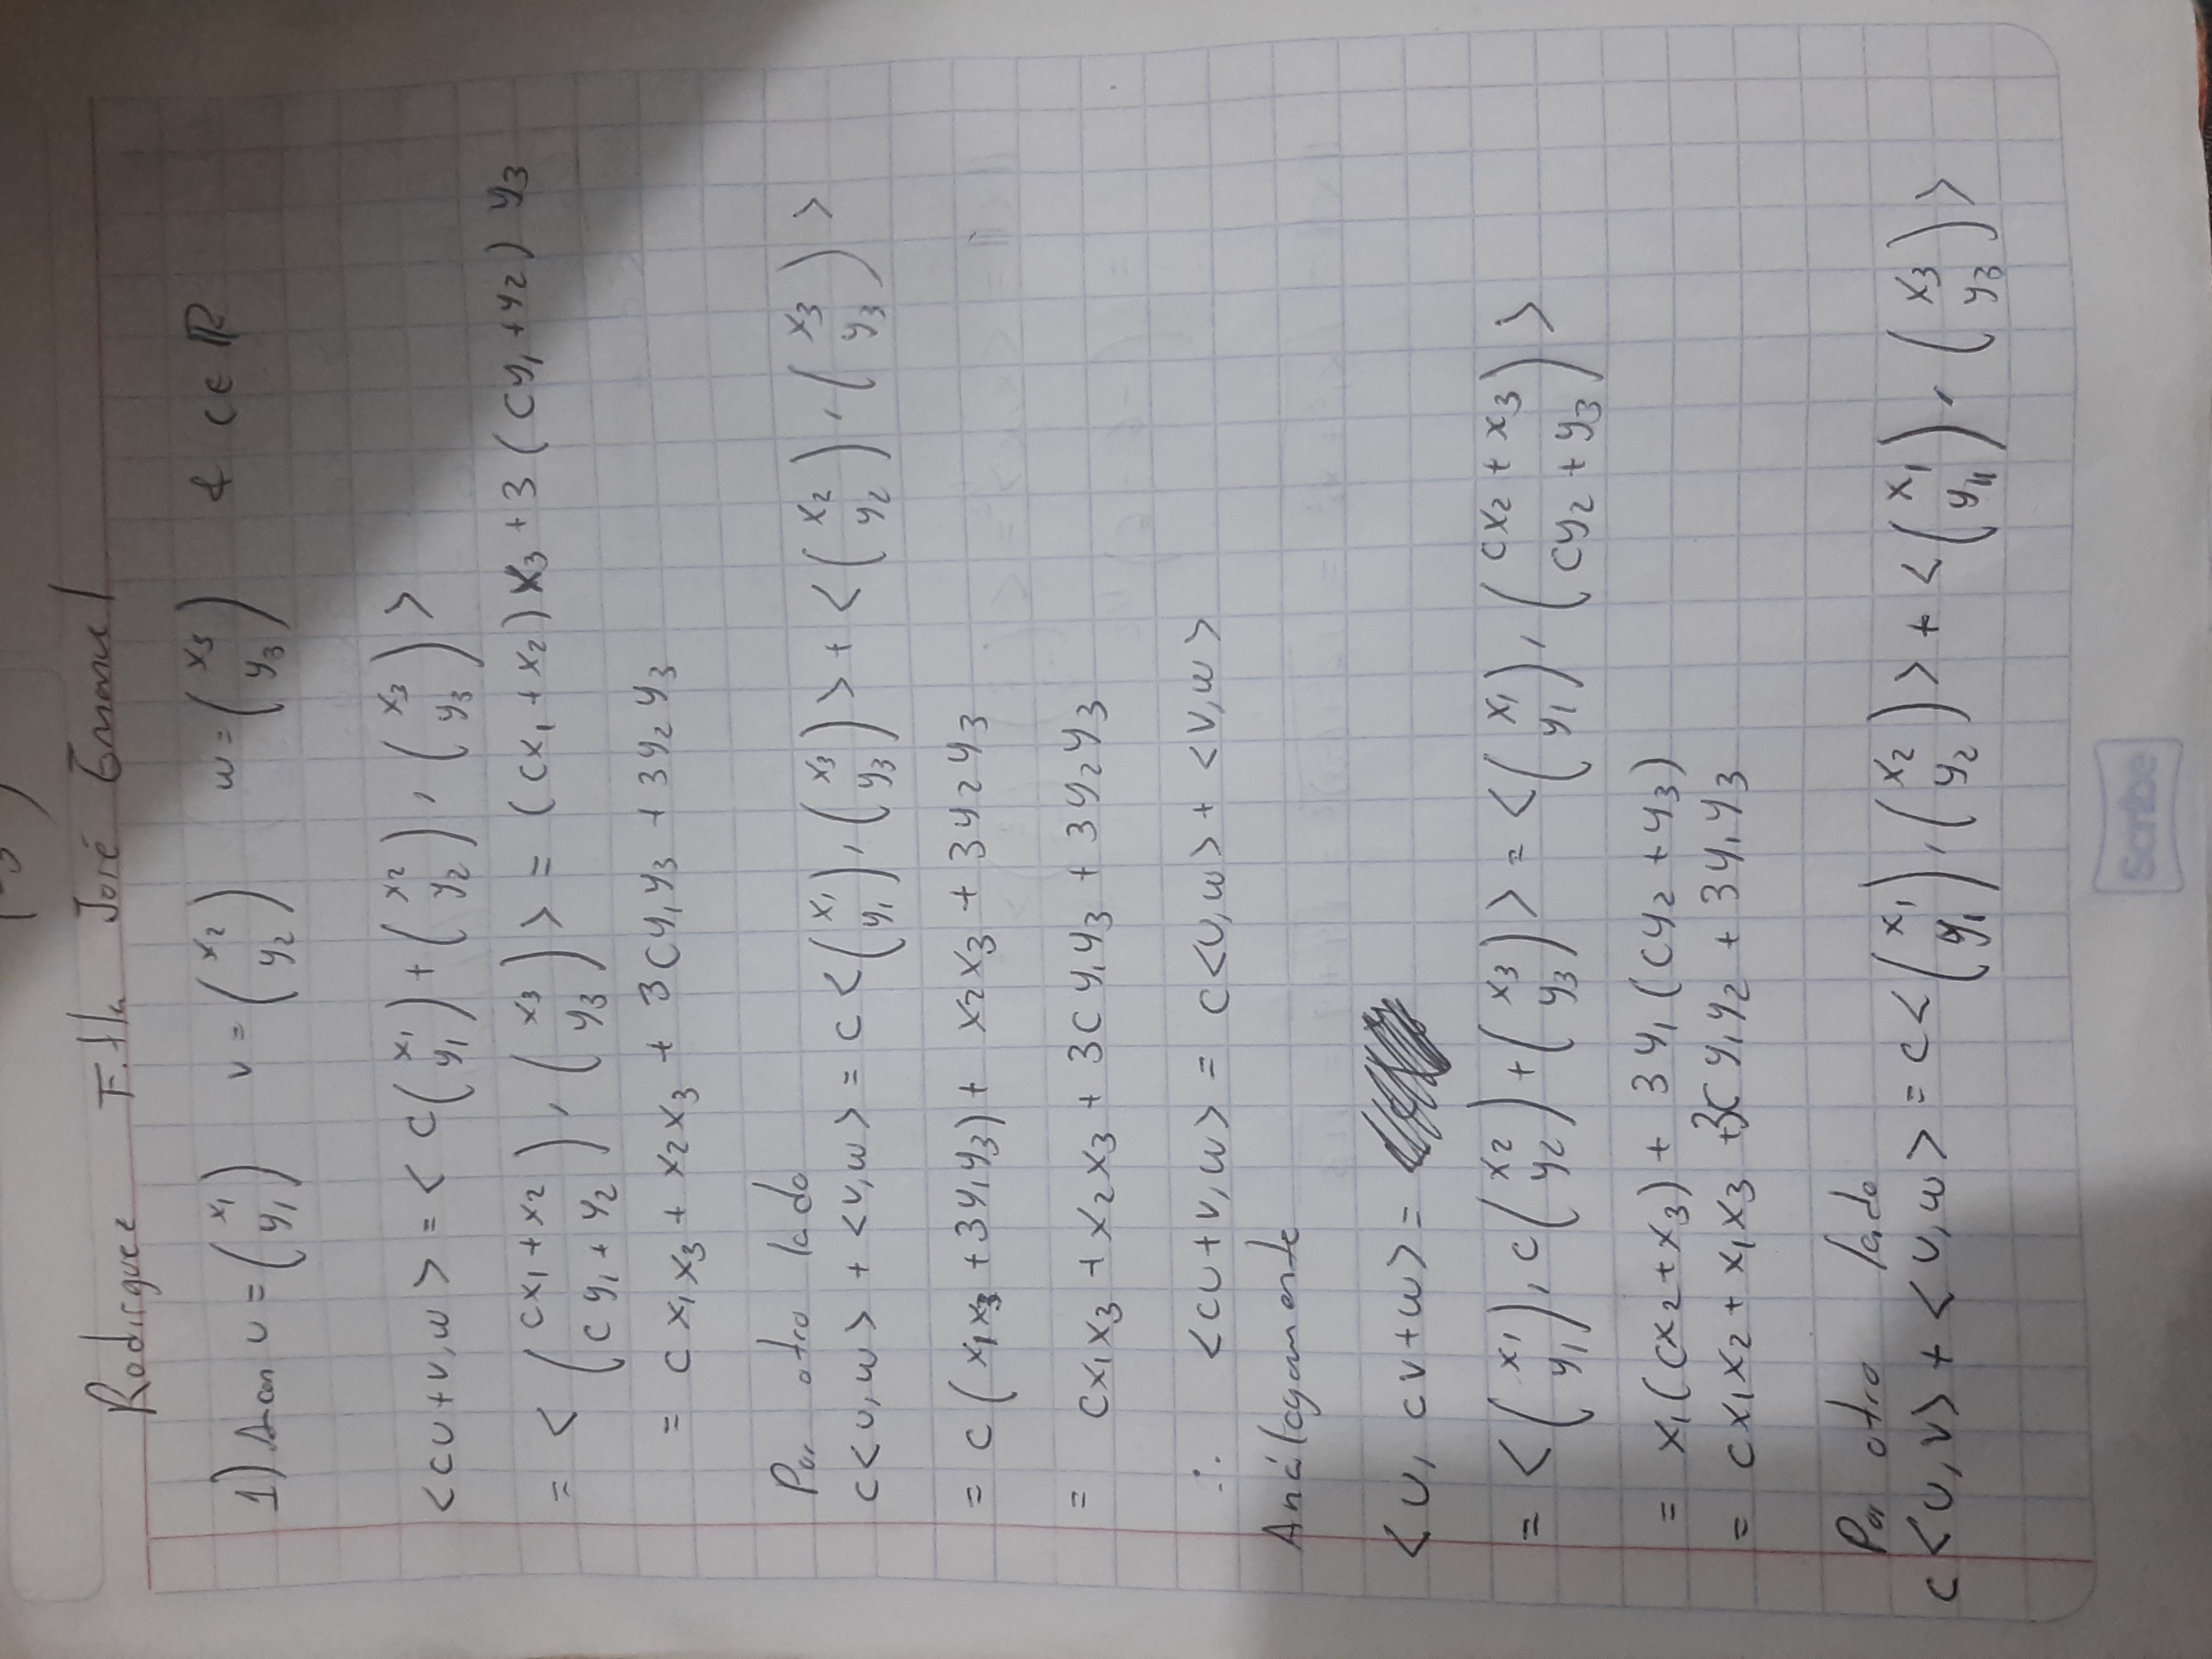 -3 )
Rodirguez Fitla José Emanuel
1) Sean u = (x₁ y₁) v = (x₂ y₂) w = (x₃ y₃) & c ∈ ℝ
<cu+v, w> = < c(x₁ y₁) + (x₂ y₂), (x₃ y₃) >
= < (cx₁+x₂ cy₁+y₂), (x₃ y₃) > = (cx₁+x₂)x₃ + 3(cy₁+y₂)y₃
= cx₁x₃ + x₂x₃ + 3cy₁y₃ + 3y₂y₃
Por otro lado
c<u,w> + <v,w> = c<(x₁ y₁), (x₃ y₃)> + <(x₂ y₂), (x₃ y₃)>
= c(x₁x₃ + 3y₁y₃) + x₂x₃ + 3y₂y₃
= cx₁x₃ + x₂x₃ + 3cy₁y₃ + 3y₂y₃
∴ <cu+v, w> = c<u,w> + <v,w>
Análogamente
<u, cv+w> =
= <(x₁ y₁), c(x₂ y₂) + (x₃ y₃)> = <(x₁ y₁), (cx₂+x₃ cy₂+y₃)>
= x₁(cx₂+x₃) + 3y₁(cy₂+y₃)
= cx₁x₂ + x₁x₃ + 3cy₁y₂ + 3y₁y₃
Por otro lado
c<u,v> + <u,w> = c<(x₁ y₁), (x₂ y₂)> + <(x₁ y₁), (x₃ y₃)>
Scribe